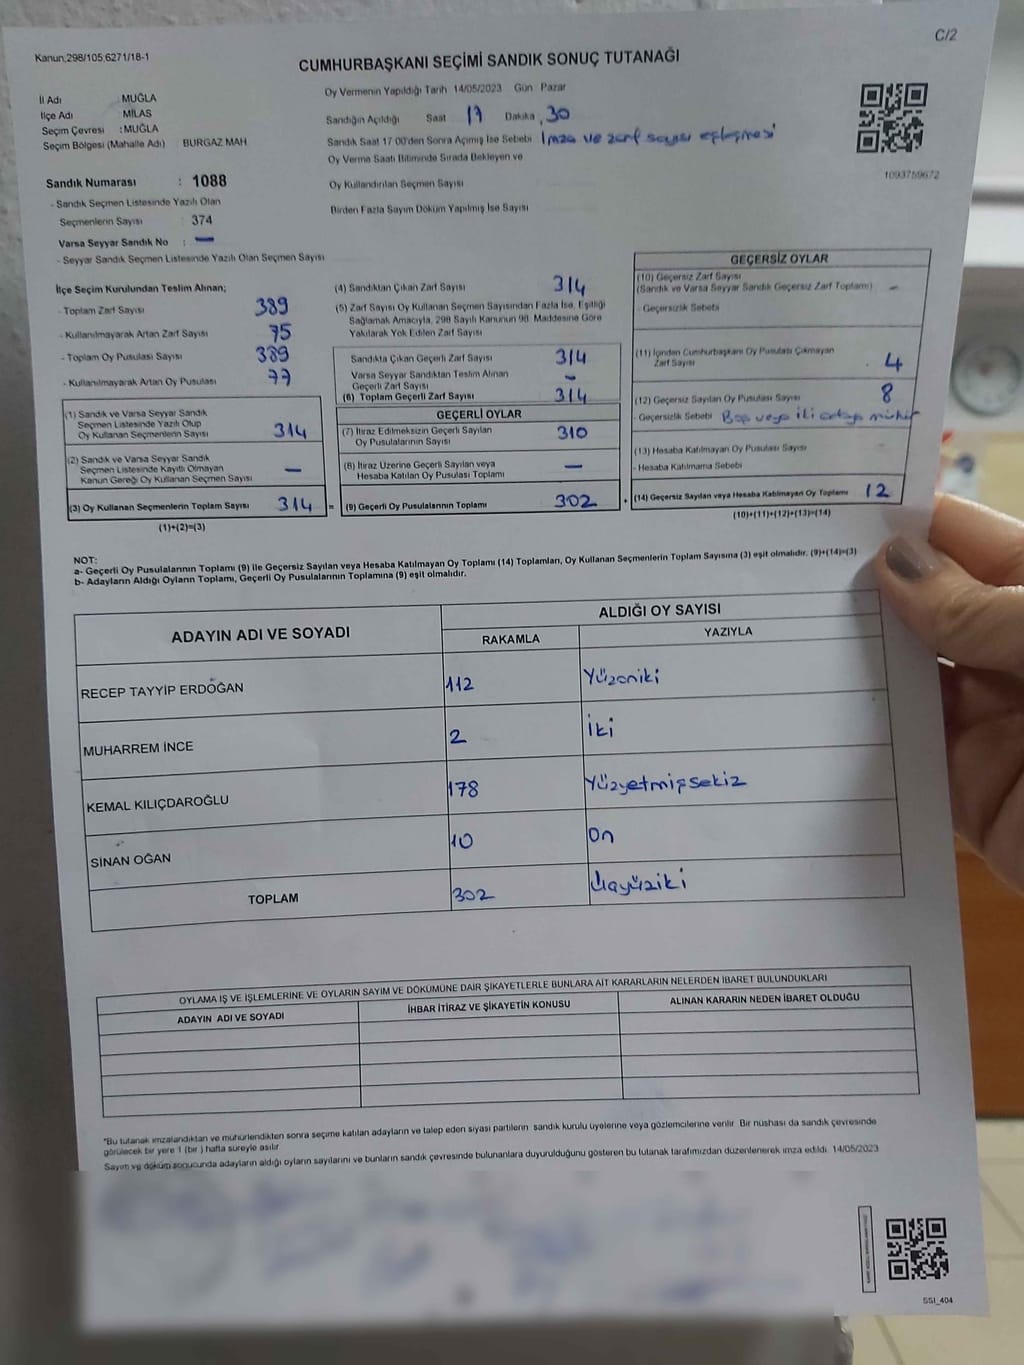 C/2
Kanun.298/105.6271/18-1
CUMHURBAŞKANI SEÇİMİ SANDIK SONUÇ TUTANAĞI
İl Adı : MUĞLA
İlçe Adı : MİLAS
Seçim Çevresi : MUĞLA
Seçim Bölgesi (Mahalle Adı) BURGAZ MAH
Oy Vermenin Yapıldığı Tarih 14/05/2023 Gün Pazar
Sandığın Açıldığı Saat 17 Dakika 30
Sandık Saat 17 00'den Sonra Açımış İse Sebebi İmza ve zarf sayısı eşleşmesi
Oy Verma Saati Bitiminde Sırada Bekleyen ve
Oy Kullandırılan Seçmen Sayısı
Birden Fazla Sayım Döküm Yapılmış İse Sayısı
1093759672
Sandık Numarası : 1088
- Sandık Seçmen Listesinde Yazılı Olan
Seçmenlerin Sayısı : 374
Varsa Seyyar Sandık No : —
- Seyyar Sandık Seçmen Listesinde Yazılı Olan Seçmen Sayısı
İlçe Seçim Kurulundan Teslim Alınan;
- Toplam Zarf Sayısı 389
- Kullanılmayarak Artan Zarf Sayısı 75
- Toplam Oy Pusulası Sayısı 389
- Kullanılmayarak Artan Oy Pusulası 77
(1) Sandık ve Varsa Seyyar Sandık
Seçmen Listesinde Yazılı Olup
Oy Kullanan Seçmenlerin Sayısı 314
(2) Sandık ve Varsa Seyyar Sandık
Seçmen Listesinde Kayıtlı Olmayan
Kanun Gereği Oy Kullanan Seçmen Sayısı —
(3) Oy Kullanan Seçmenlerin Toplam Sayısı 314 =
(1)+(2)=(3)
(4) Sandıktan Çıkan Zarf Sayısı 314
(5) Zarf Sayısı Oy Kullanan Seçmen Sayısından Fazla İse, Eşitliği
Sağlamak Amacıyla, 298 Sayılı Kanunun 98. Maddesine Göre
Yakılarak Yok Edilen Zarf Sayısı
Sandıkta Çıkan Geçerli Zarf Sayısı 314
Varsa Seyyar Sandıktan Teslim Alınan
Geçerli Zarf Sayısı —
(6) Toplam Geçerli Zarf Sayısı 314
GEÇERLİ OYLAR
(7) İtiraz Edilmeksizin Geçerli Sayılan
Oy Pusulalarının Sayısı 310
(8) İtiraz Üzerine Geçerli Sayılan veya
Hesaba Katılan Oy Pusulası Toplamı —
(9) Geçerli Oy Pusulalarının Toplamı 302 +
GEÇERSİZ OYLAR
(10) Geçersiz Zarf Sayısı
(Sandık ve Varsa Seyyar Sandık Geçersiz Zarf Toplamı) –
- Geçersizlik Sebebi
(11) İçinden Cumhurbaşkanı Oy Pusulası Çıkmayan
Zarf Sayısı 4
(12) Geçersiz Sayılan Oy Pusulası Sayısı 8
- Geçersizlik Sebebi Boş veya iki adaya mühür
(13) Hesaba Katılmayan Oy Pusulası Sayısı –
- Hesaba Katılmama Sebebi
(14) Geçersiz Sayılan veya Hesaba Katılmayan Oy Toplamı 12
(10)+(11)+(12)+(13)=(14)
NOT:
a- Geçerli Oy Pusulalarının Toplamı (9) ile Geçersiz Sayılan veya Hesaba Katılmayan Oy Toplamı (14) Toplamları, Oy Kullanan Seçmenlerin Toplam Sayısına (3) eşit olmalıdır. (9)+(14)=(3)
b- Adayların Aldığı Oyların Toplamı, Geçerli Oy Pusulalarının Toplamına (9) eşit olmalıdır.
ADAYIN ADI VE SOYADI
ALDIĞI OY SAYISI
RAKAMLA YAZIYLA
RECEP TAYYİP ERDOĞAN 112 Yüzoniki
MUHARREM İNCE 2 İki
KEMAL KILIÇDAROĞLU 178 Yüzyetmişsekiz
SİNAN OĞAN 10 On
TOPLAM 302 Üçyüziki
OYLAMA İŞ VE İŞLEMLERİNE VE OYLARIN SAYIM VE DÖKÜMÜNE DAİR ŞİKAYETLERLE BUNLARA AİT KARARLARIN NELERDEN İBARET BULUNDUKLARI
ADAYIN ADI VE SOYADI İHBAR İTİRAZ VE ŞİKAYETİN KONUSU ALINAN KARARIN NEDEN İBARET OLDUĞU
*Bu tutanak imzalandıktan ve mühürlendikten sonra seçime katılan adayların ve talep eden siyasi partilerin sandık kurulu üyelerine veya gözlemcilerine verilir. Bir nüshası da sandık çevresinde
görülecek bir yere 1 (bir ) hafta süreyle asılır.
Sayım ve döküm sonucunda adayların aldığı oyların sayılarını ve bunların sandık çevresinde bulunanlara duyurulduğunu gösteren bu tutanak tarafımızdan düzenlenerek imza edildi. 14/05/2023
SSI_404